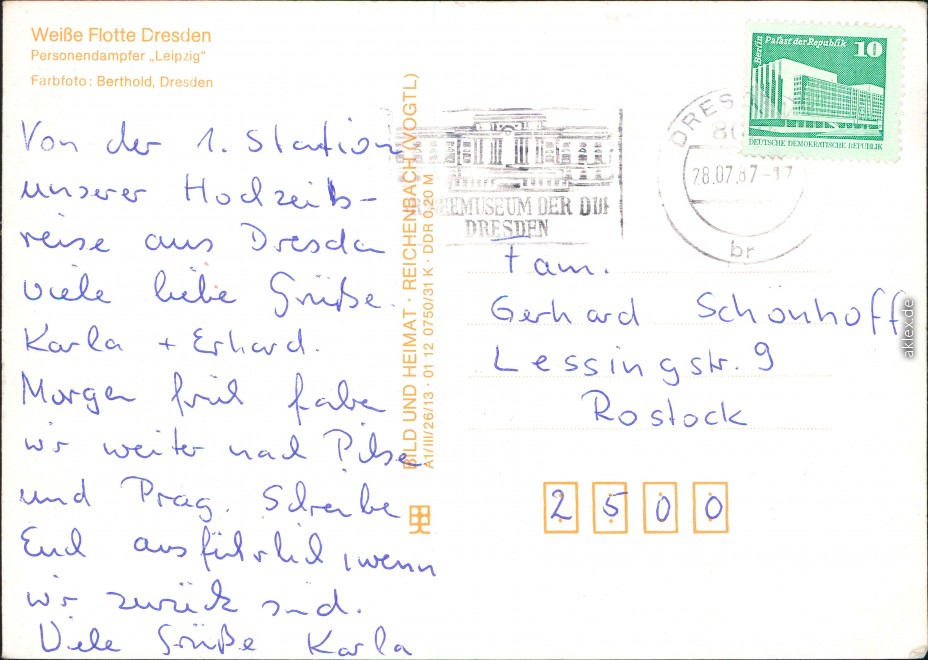 Weiße Flotte Dresden
Personendampfer „Leipzig"
Farbfoto: Berthold, Dresden
Von der 1. Station
unserer Hochzeits-
reise aus Dresden
viele liebe Grüße.
Karla + Erhard.
Morgen früh fahren
wir weiter nach Pilsen
und Prag. Schreibe
Euch ausführlich, wenn
wir zurück sind.
Viele Grüße Karla
BILD UND HEIMAT · REICHENBACH (VOGTL)
A1/III/26/13 · 01 12 0750/31 K · DDR 0,20 M
MUSEUM DER DDR
DRESDEN
DRES
80
28.07.87-17
br
Berlin Palast der Republik 10
DEUTSCHE DEMOKRATISCHE REPUBLIK
Fam.
Gerhard Schönhoff
Lessingstr. 9
Rostock
2500
aklex.de